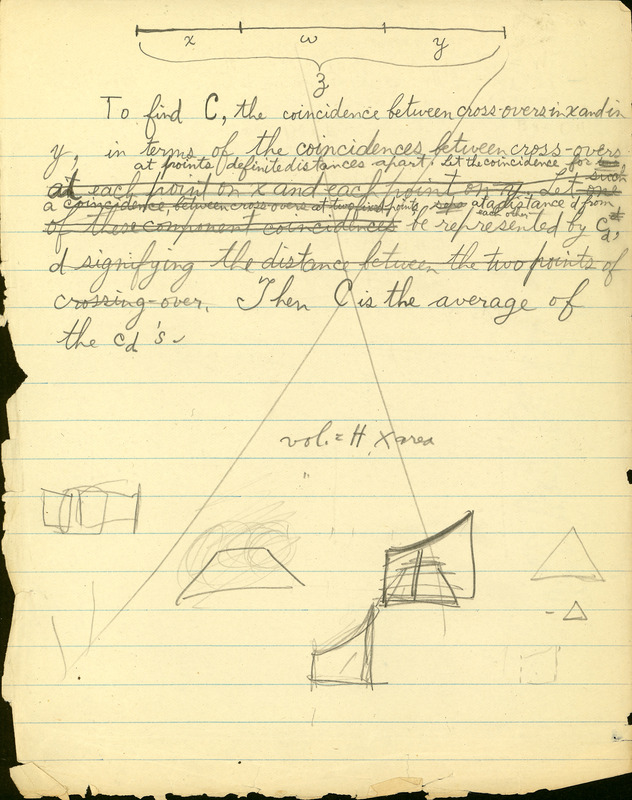 x w y
z
To find C, the coincidence between cross-overs in x and in
y, in terms of the coincidences between cross-overs
at points definite distances apart. Let the coincidence for
at each point on x and each point on y. Let one such
a coincidence, between cross-overs at two points, at a distance d from each other
of these component coincidences be represented by Cd,
d signifying the distance between the two points of
crossing-over. Then C is the average of
the cd's
vol. = H × area